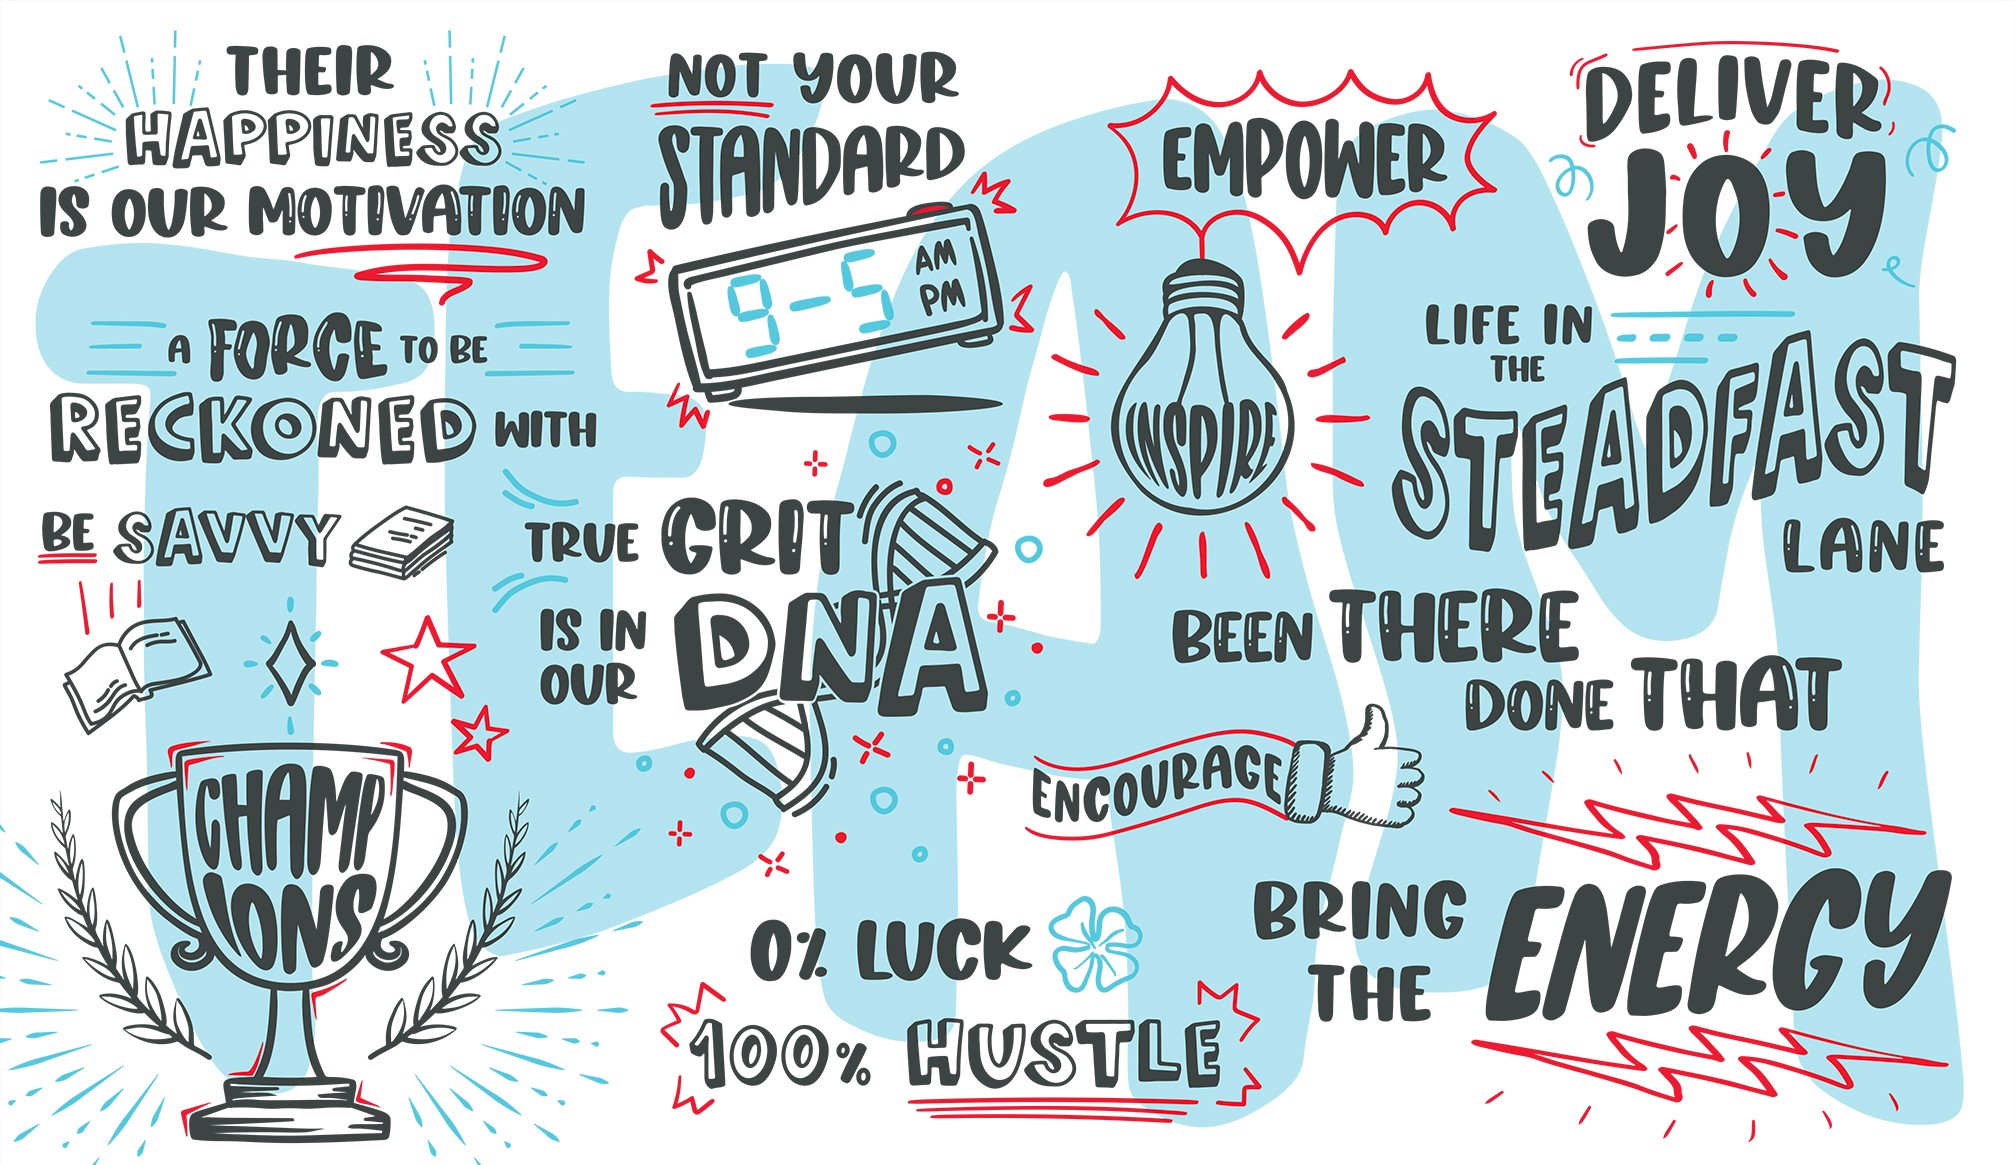 THEIR
HAPPINESS
IS OUR MOTIVATION
A FORCE TO BE
RECKONED WITH
BE SAVVY
CHAMP
IONS
NOT YOUR
STANDARD
9-5 AM
PM
TRUE GRIT
IS IN
OUR DNA
0% LUCK
100% HUSTLE
EMPOWER
INSPIRE
DELIVER
JOY
LIFE IN
THE
STEADFAST
LANE
BEEN THERE
DONE THAT
ENCOURAGE
BRING
THE ENERGY
TEAM